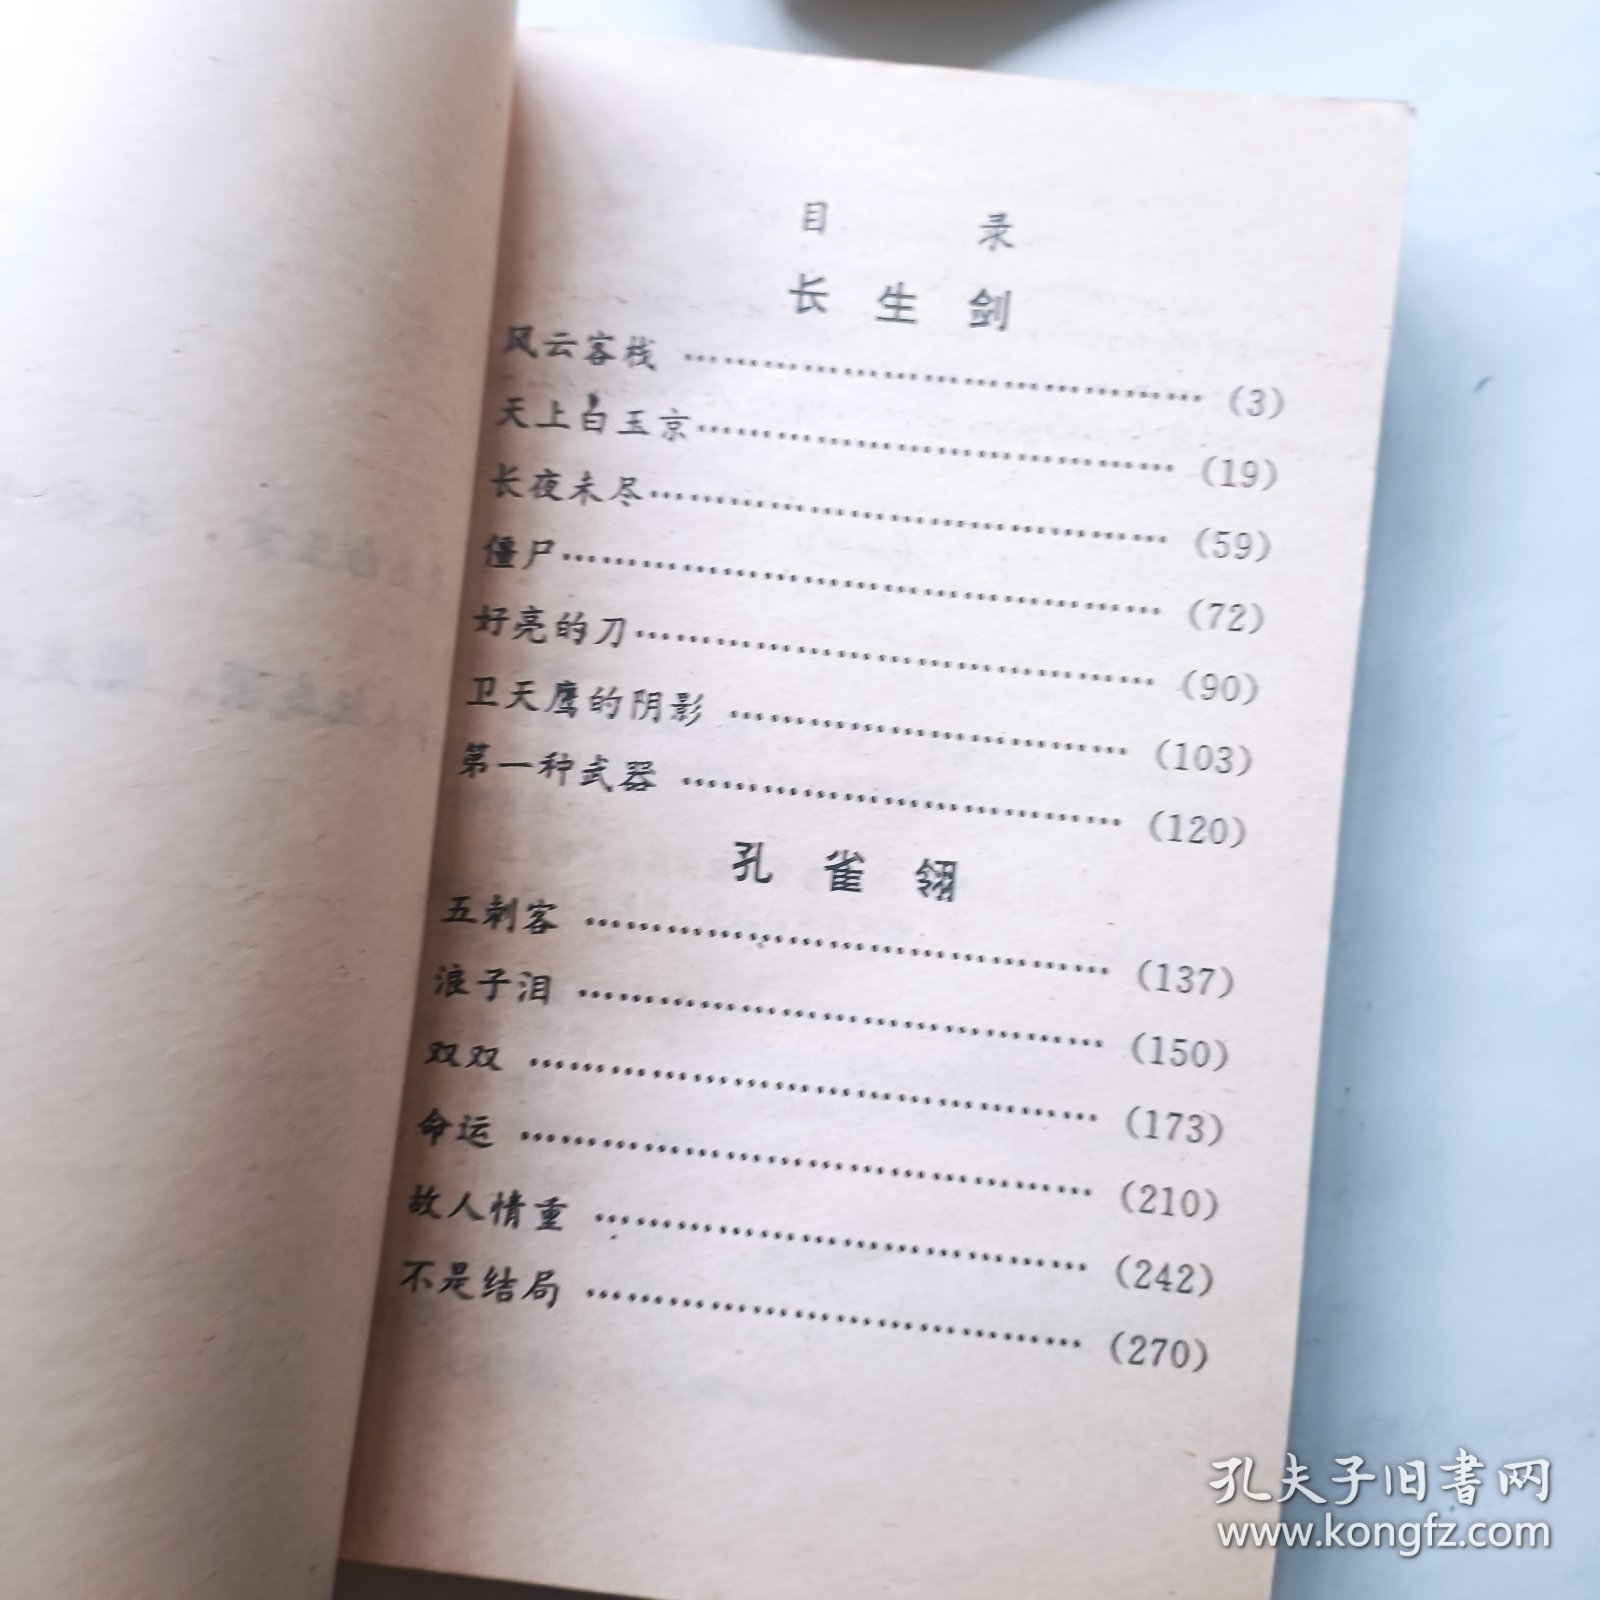 目 录
长生剑
风云客栈 …………………………………… (3)
天上白玉京…………………………………… (19)
长夜未尽…………………………………… (59)
僵尸…………………………………… (72)
好亮的刀…………………………………… (90)
卫天鹰的阴影 …………………………………… (103)
第一种武器 …………………………………… (120)
孔雀翎
五刺客 …………………………………… (137)
浪子泪 …………………………………… (150)
双双 …………………………………… (173)
命运 …………………………………… (210)
故人情重 …………………………………… (242)
不是结局 …………………………………… (270)
孔夫子旧书网
www.kongfz.com